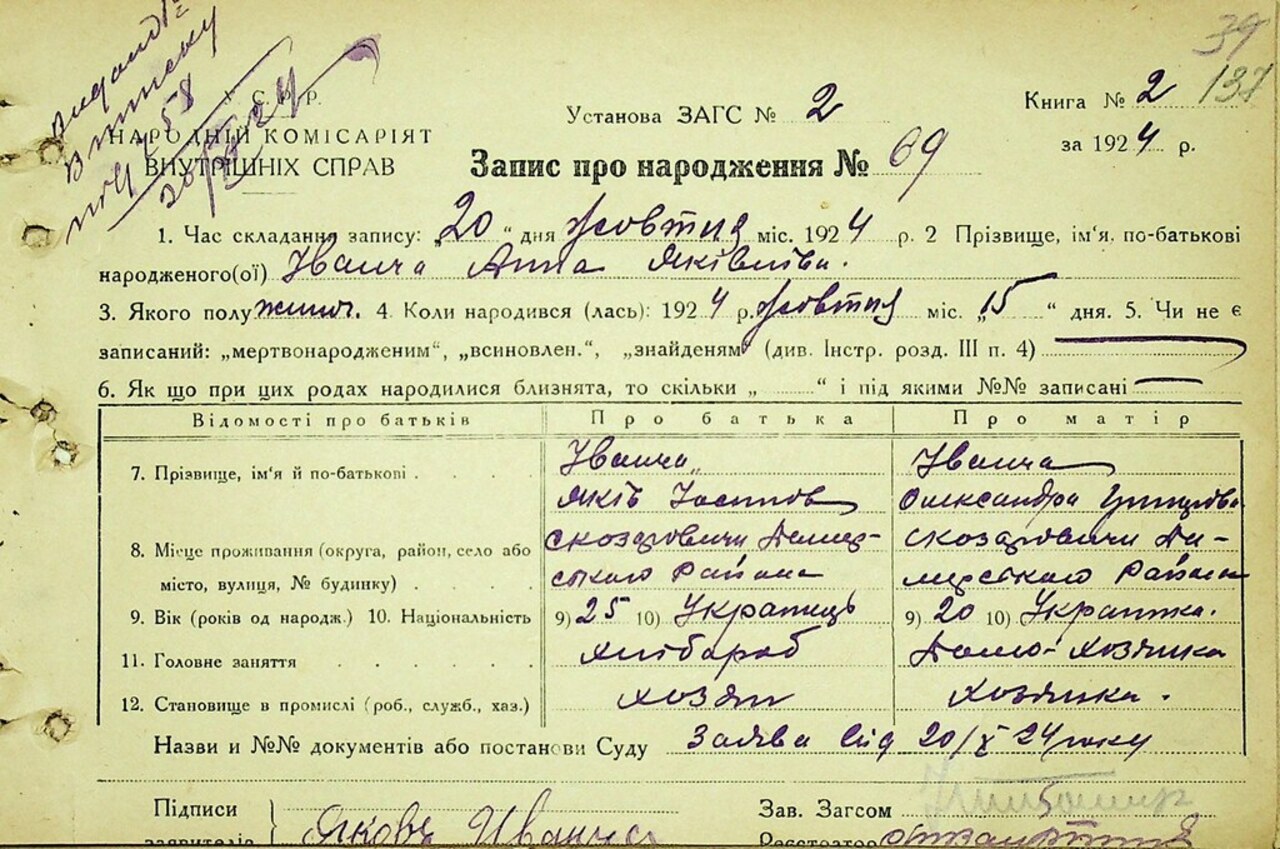 39
137
видано
Виписку
С. Р. Р.
НАРОДНІЙ КОМІСАРІЯТ
ВНУТРІШНІХ СПРАВ
Установа ЗАГС № 2
Книга № 2
за 1924 р.
Запис про народження № 69
1. Час складання запису: „20“ дня жовтня міс. 1924 р. 2 Прізвище, ім'я, по-батькові
народженого(ої) Іванча Анна Яківлівна.
3. Якого полу жиноч. 4. Коли народився (лась): 1924 р. жовтня міс. „15“ дня. 5. Чи не є
записаний: „мертвонародженим“, „всиновлен.“, „знайденям“ (див. Інстр. розд. III п. 4)
6. Як що при цих родах народилися близнята, то скільки „ “ і під якими №№ записані
Відомості про батьків Про батька Про матір
7. Прізвище, ім'я й по-батькові Іванча Іванча
Яків Олександра
8. Місце проживання (округа, район, село або
місто, вулиця, № будинку) района района
9. Вік (років од народж.) 10. Національність 9) 25 10) Украинець 9) 20 10) Украинка.
11. Головне заняття Хлібараб Домо-хозяика
12. Становище в промислі (роб., служб., хаз.) хозяин хозяика.
Назви и №№ документів або постанови Суду Заява від 20/X 24 року
Підписи
заявителів Яковъ Иванча
Зав. Загсом
Реєстратор